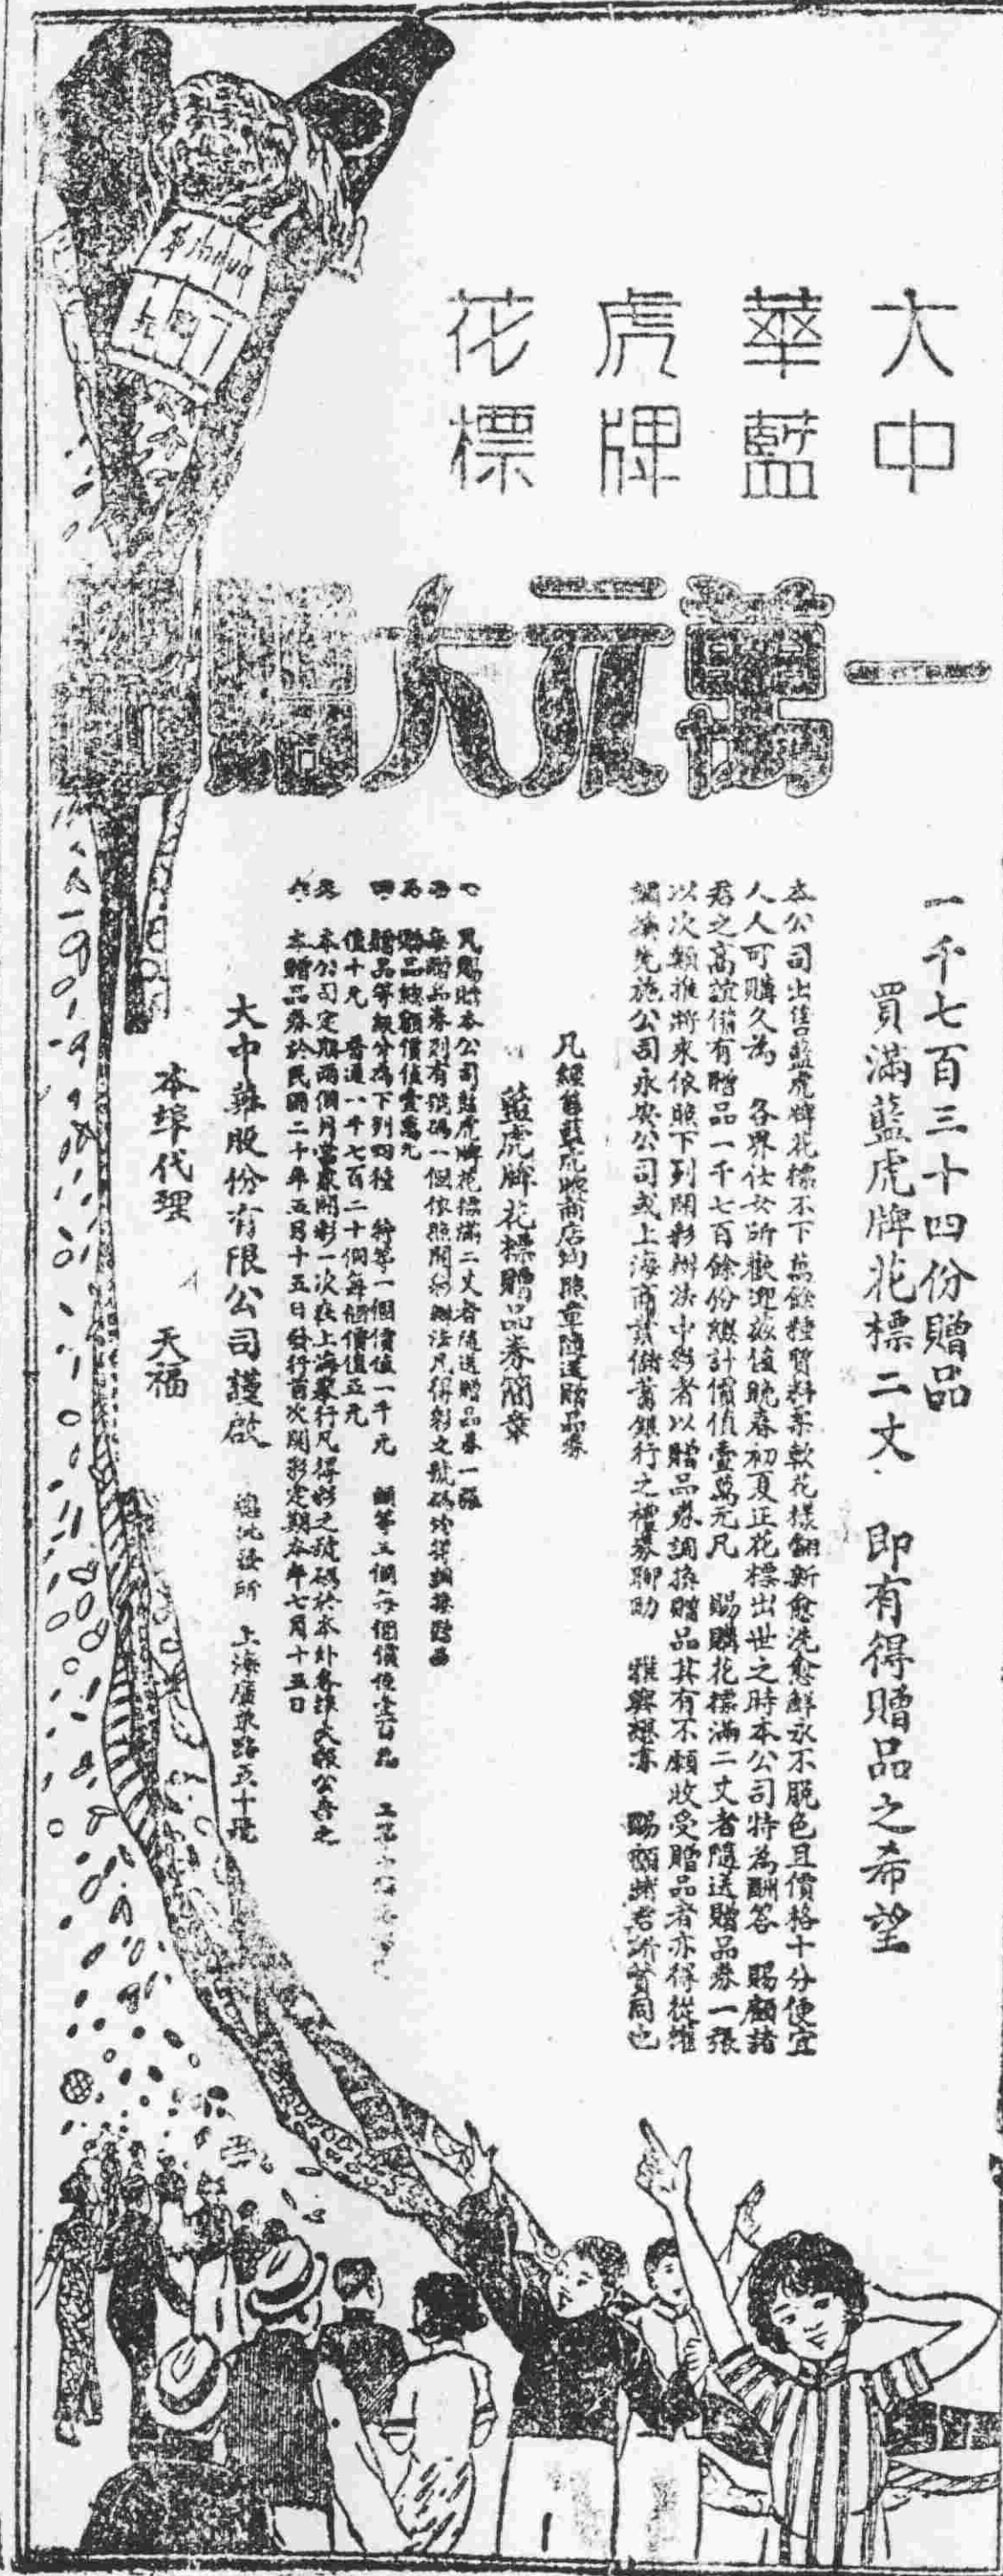 大中
華藍
虎牌
花標
一萬元大贈
一千七百三十四份贈品
買滿藍虎牌花標二丈 即有得贈品之希望
本公司出售藍虎牌花標不下萬餘種質料柔軟花樣翻新愈洗愈鮮永不脫色且價格十分便宜
人人可購久為 各界仕女所歡迎茲值晚春初夏正花標出世之時本公司特為酬答 賜顧諸
君之高誼備有贈品一千七百餘份總計價值壹萬元凡 賜購花標滿二丈者隨送贈品券一張
以次類推將來依照下列開彩辦法中彩者以贈品券調換贈品其有不願收受贈品者亦得從
調換先施公司永安公司或上海商業儲蓄銀行之禮券聊助 雅興想亦 賜顧諸君所贊同也
凡經售藍虎牌商店均照章隨送贈品券
藍虎牌花標贈品券簡章
凡賜購本公司藍虎牌花標滿二丈者隨送贈品券一張
每贈品券列有號碼一個依照開彩辦法凡得彩之號碼均得調換贈品
贈品總額價值壹萬元
四 贈品等級分為下列四種 特等一個價值一千元 頭等五個每個價值壹百元
值十元 普通一千七百二十個每個價值五元
本公司定期兩個月當眾開彩一次在上海舉行凡得彩之號碼於本外各埠大報公告之
本贈品券於民國二十年五月十五日發行首次開彩定期本年七月十五日
大中華股份有限公司謹啟 總批發所 上海廣東路五十號
本埠代理 天福